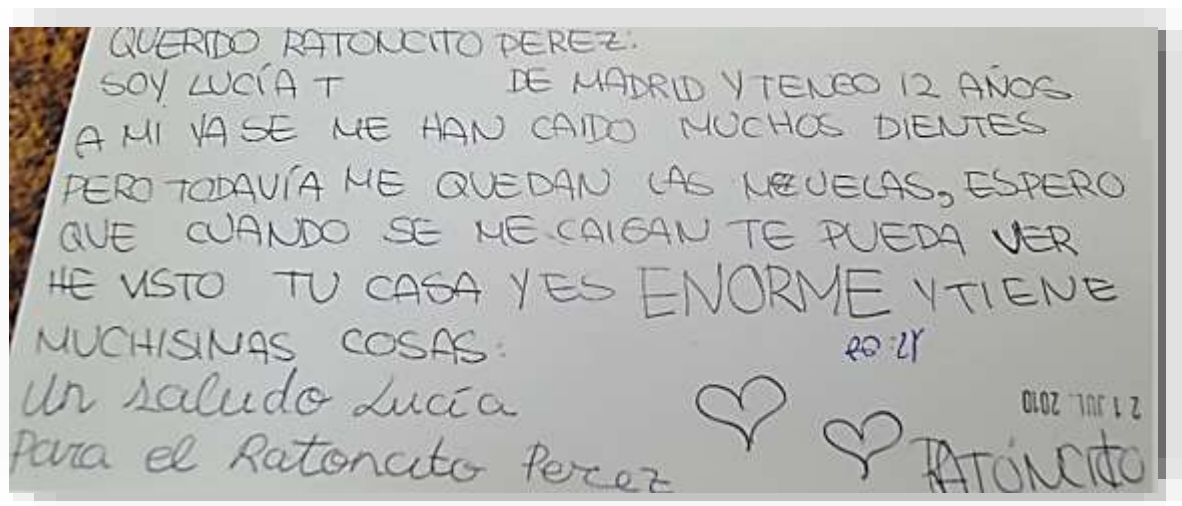 QUERIDO RATONCITO PEREZ:
SOY LUCÍA T DE MADRID Y TENGO 12 AÑOS
A MI YA SE ME HAN CAIDO MUCHOS DIENTES
PERO TODAVÍA ME QUEDAN LAS MUELAS, ESPERO
QUE CUANDO SE ME CAIGAN TE PUEDA VER
HE VISTO TU CASA Y ES ENORME Y TIENE
MUCHISIMAS COSAS:
Un saludo Lucía
Para el Ratoncito Perez
21 JUL. 2010
RATONCITO